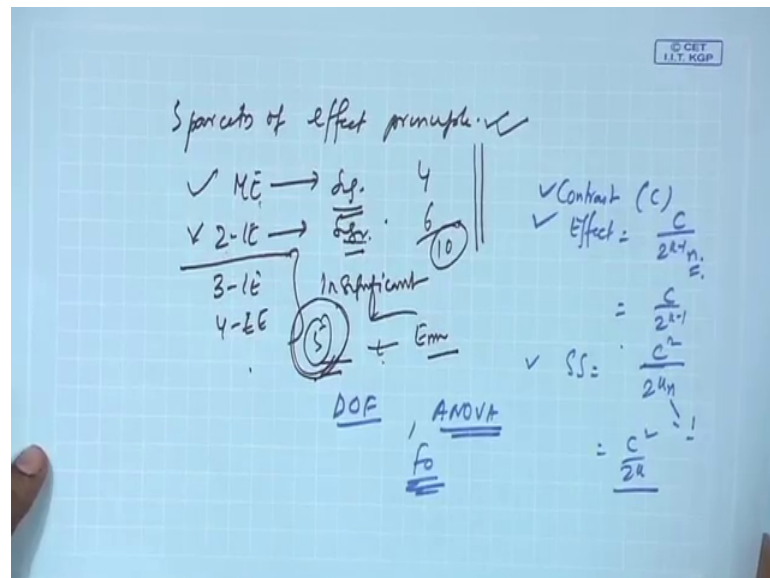 © CET
I.I.T. KGP
Sparcity of effect principle.
ME → Sig. 4
2-IE → Sig. 6
10
3-IE Insignificant
4-IE
5 Error
DOF, ANOVA
F0
Contrast (C)
Effect = C / 2^{k-1} n
= C / 2^{k-1}
SS = C^2 / 2^k n
= C^2 / 2^k